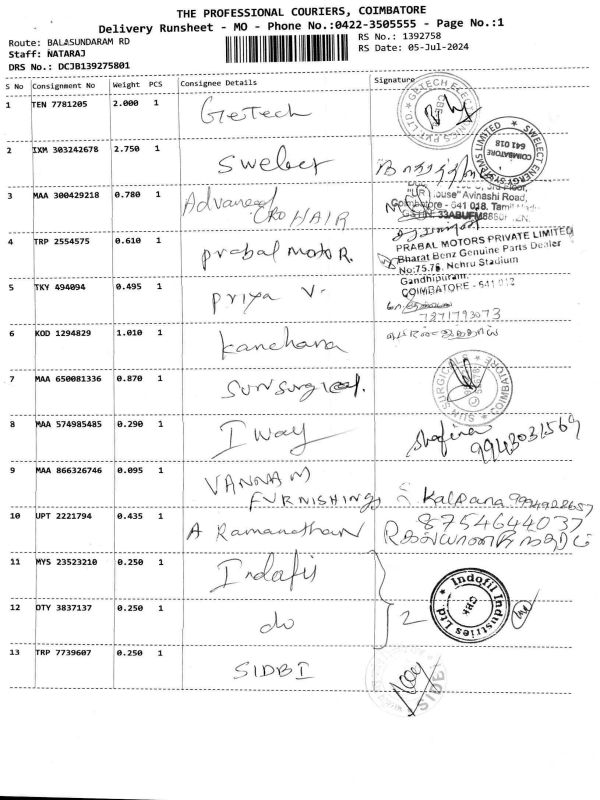 THE PROFESSIONAL COURIERS, COIMBATORE
Delivery Runsheet - MO - Phone No.:0422-3505555 - Page No.:1
Route: BALASUNDARAM RD
RS No.: 1392758
Staff: NATARAJ
RS Date: 05-Jul-2024
DRS No.: DCJB139275801
S No Consignment No Weight PCS Consignee Details Signature
1 TEN 7781205 2.000 1 Getech
2 IXM 303242678 2.750 1 Swelect
SWELECT ENERGY SYSTEMS LIMITED
COIMBATORE
641 018
3 MAA 300429218 0.780 1 Advanced
GRO HAIR
House" Avinashi Road,
Coimbatore - 641 018. Tamil
4 TRP 2554575 0.610 1 prabal motor.
PRABAL MOTORS PRIVATE LIMITED
Bharat Benz Genuine Parts Dealer
No:75.76, Nehru Stadium
Gandhipuram,
COIMBATORE - 641 012
5 TKY 494094 0.495 1 priya V.
7371793073
6 KOD 1294829 1.010 1 Kanchana
7 MAA 650081336 0.870 1 Sunsurgical.
SUN SURGICALS
COIMBATORE
8 MAA 574985485 0.290 1 I way
9 MAA 866326746 0.095 1 VANNAM
FURNISHING
Kalpana 9994928657
10 UPT 2221794 0.435 1 A Ramanathan
8754644037
11 MYS 23523210 0.250 1 Indofil
12 OTY 3837137 0.250 1 do
2
Indofil Industries Ltd.
CBE
13 TRP 7739607 0.250 1 SIDBI
SIDBI